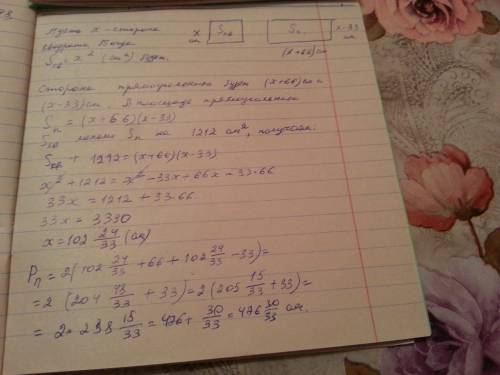 Пусть x - сторона
квадрата. Тогда
Sкв = x² (см²) будет.
x см
Sкв
Sп
x-33 см
(x+66) см
Стороны прямоугольника будут (x+66) см и
(x-33) см, а площадь прямоугольника
Sп = (x+66)(x-33)
Sкв меньше Sп на 1212 см², получаем:
Sкв + 1212 = (x+66)(x-33)
x² + 1212 = x² - 33x + 66x - 33·66
33x = 1212 + 33·66
33x = 3390
x = 102 24/33 (см)
Pп = 2(102 24/33 + 66 + 102 24/33 - 33) =
= 2 (204 48/33 + 33) = 2 (205 15/33 + 33) =
= 2 · 238 15/33 = 476 + 30/33 = 476 30/33 см.